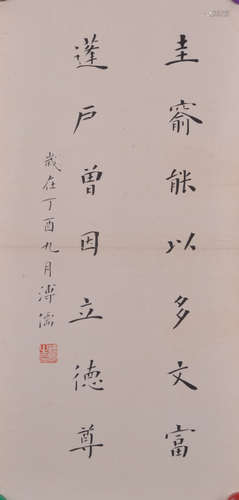 圭窬能以多文富
蓬戶曾因立德尊
歲在丁酉九月溥儒